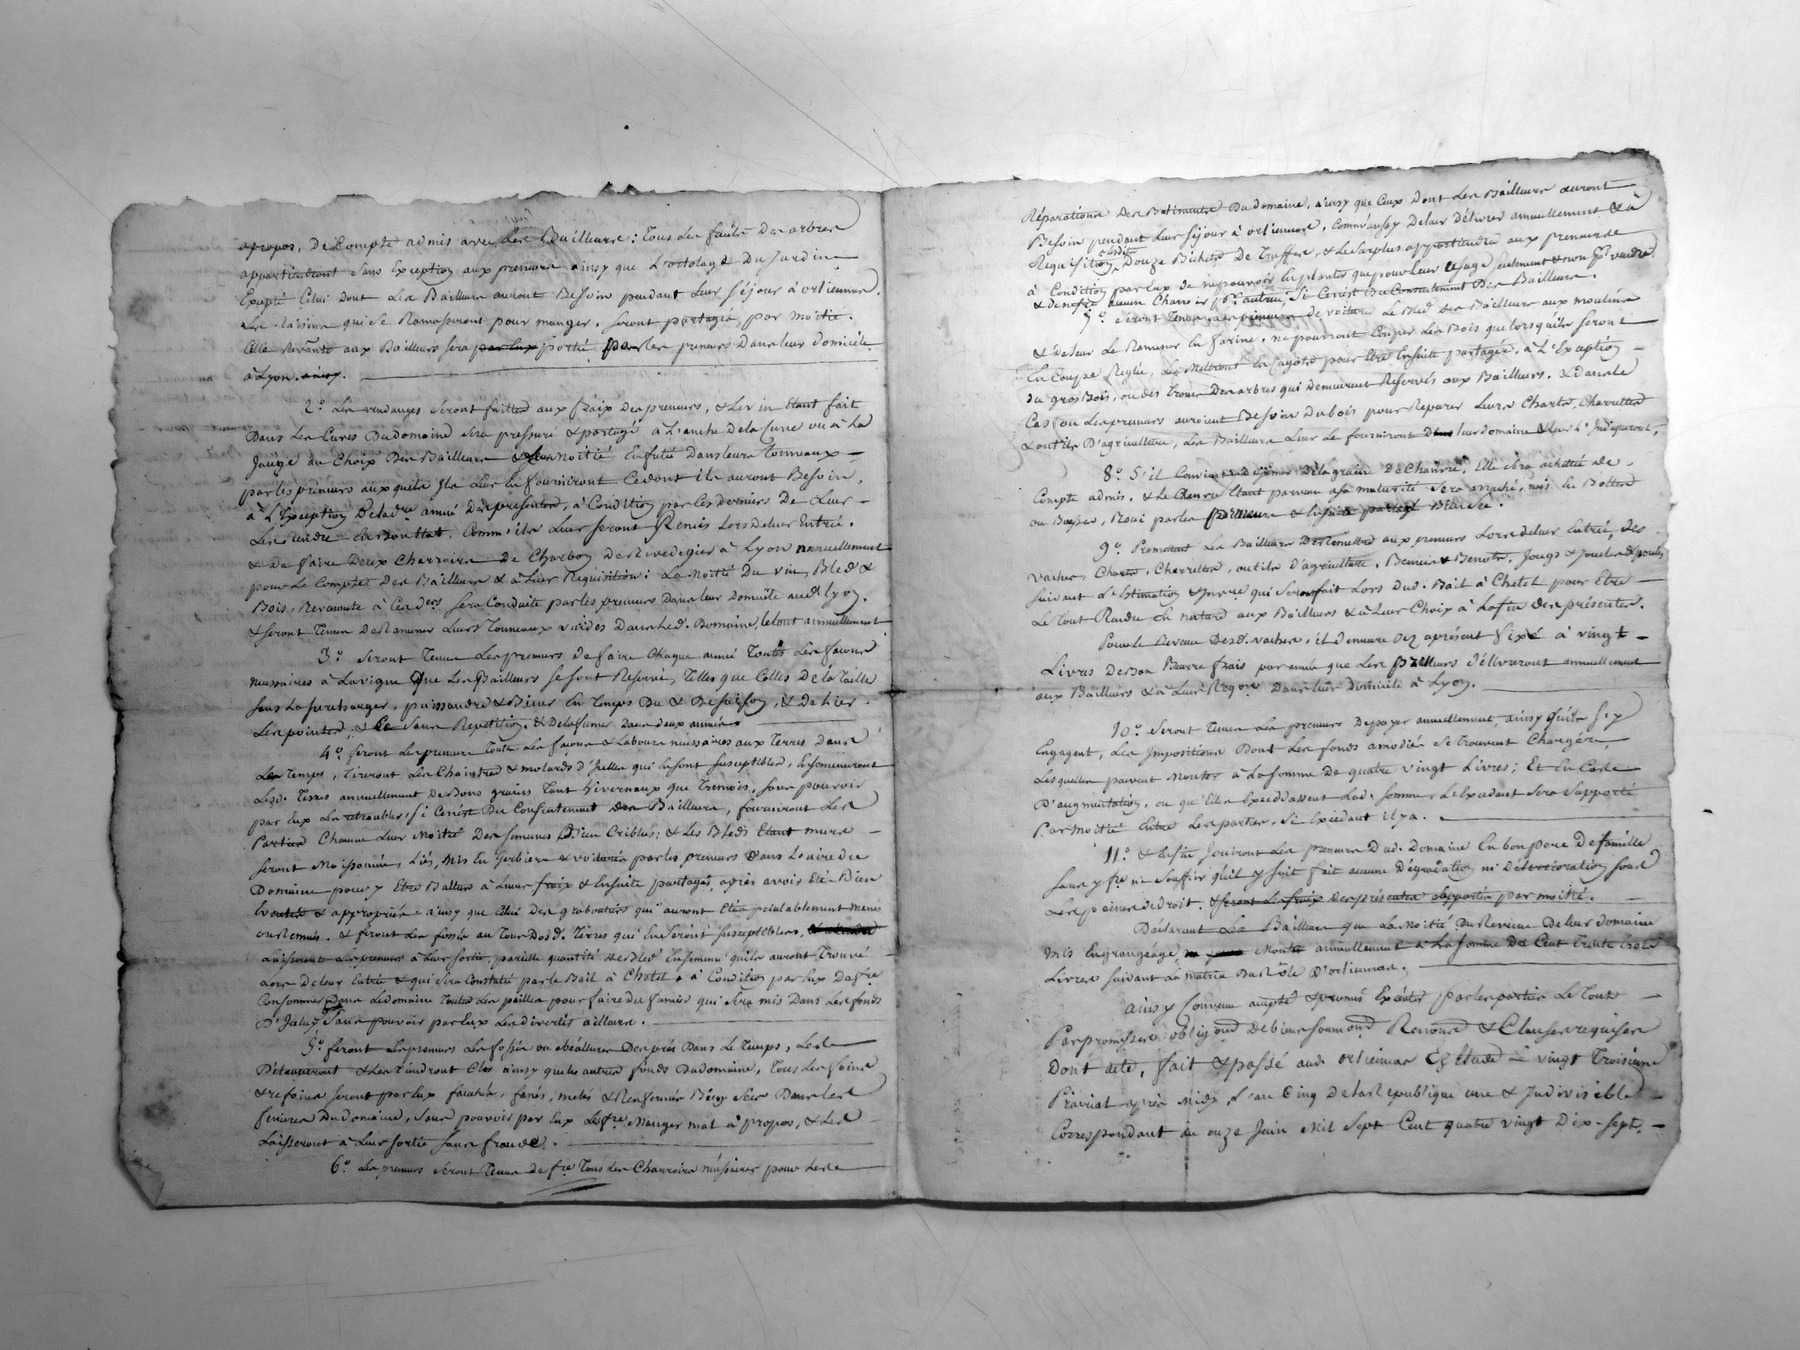 apropos, De Compte admis avec Les Bailleurs : Tous Les fruits Des arbres
appartiendront sans Exception aux preneurs ainsy que L'ortolage Du Jardin
Excepté Celui dont Les Bailleurs auront Besoin pendant Leur Séjour à ortiennas.
Les Raisins qui se Ramasseront pour manger, seront partagés par moitié.
Celle Revante aux Bailleurs sera par Eux portée par les preneurs Dans leur domicile
à Lyon.
2.° Les vendanges seront faittes aux fraix Des preneurs, & Le vin Etant fait
Dans Les Cuves Du domaine sera pressuré & partagé à L'anche De la Cuve ou à La
Jauge au Choix Des Bailleurs & Leur moitié Enfutée Dans leurs Tonneaux
par les preneurs auxquels Ils Leur En fourniront Ce dont ils auront Besoin,
à L'Exception De la dre année Des presentes, à Condition par les derniers De Leur
Les Rendre En Bon Etat. Comme ils Leur seront Remis Lors de leur Entrée.
& De faire Deux Charrois De Charbon De Rivedegier à Lyon annuellement
pour Le Compte Des Bailleurs & à Leur Requisition : La moitié Du vin, Bled &
Bois, Revenante à Ces ders sera Conduite par les preneurs Dans leur Domicile aud. Lyon,
& seront Tenus De Ramener Leurs Tonneaux vuides Dans Led. Domaine, le tout annuellement
3.° Seront Tenus Les preneurs de faire Chaque année Toutes Les façons
necessaires à La vigne que Les Bailleurs se sont Reservé, Telles que Celles De la Taille
sans La surcharger, puissandre & Biner En Temps Du & De saison, & De Lier
Les pointes, & Ce sans Repetition, & De la fumer Dans deux années
4.° feront Les preneurs Toutes Les façons & Labours necessaires aux Terres Dans
Les Temps, Tireront Les Chaintres & molards d'Icelles qui En sont susceptibles, Ensemenceront
Lesd. Terres annuellement De Bons grains Tant hivernaux que Tremois, sans pouvoir
par Eux Les retroubler, si Ce n'est Du Consentement Des Bailleurs, fourniront Les
Parties Chacune Leur Moitié Des semences Bien Criblés ; & Les Bleds Etant murs
seront Moissonnés, Liés, Mis En Gerbiers & voiturés par les preneurs Dans L'aire du
Domaine pour y Etre Battus à Leurs fraix & Ensuite partagés, après avoir Eté Bien
& appropriés ainsy que Celui Des qui auront Eté préalablement menés
& feront Les fossés au Tour Desd. Terres qui En seront susceptibles,
Laisseront Les preneurs à Leur sortie, pareille quantité de Bled Ensemencé qu'ils auront Trouvé
Lors De leur Entrée & qui sera Constatée par le Bail à Chetel & à Condition par Eux De fre
Consommer Dans Le Domaine Toutes Les pailles pour faire du fumier qui sera mis Dans Les fonds
D'Jceluy Sans pouvoir par Eux Les divertir ailleurs.
5.° feront Les preneurs Les fossés ou Des prés Dans Le Temps, Les
Détauperont & Les Tiendront Clos ainsy que les autres fonds Du domaine, Tous Les foins
& refoins seront par Eux fauchés, fanés, & Renfermés Bien Secs Dans Les
fenières Du domaine, Sans pouvoir par Eux Les fre Manger mal à propos, & Les
Laisseront à Leur sortie sans fraude.
6.° Les preneurs seront Tenus de fre Tous Les Charrois nécessaires pour Les
Réparations Des Batiments Du domaine, ainsy que Ceux Dont Les Bailleurs auront
Besoin pendant Leur Séjour à ortiennas, Comm'aussy De leur délivrer annuellement & à
Requisition Douze Bichets De Truffes, & Le surplus appartiendra aux preneurs
à Condition par Eux de ne pouvoir En planter que pour Leur usage seulement & non pr vendre
& De ne fre aucun Charroir pr autrui, si Ce n'est Du Consentement Des Bailleurs.
7.° Seront Tenus Les preneurs De voiturer Le Bled Des Bailleurs aux moulins
& De leur Le Ramener En farine, ne pourront Couper Les Bois que lorsqu'ils seront
En Coupe Reglée, Les Mettront En fagots pour Etre Ensuite partagés, à L'Exception
du gros Bois, ou des Troncs Des arbres qui Demeurent Reservés aux Bailleurs. & Dans Le
Cas ou Les preneurs auroient Besoin Du bois pour Reparer Leurs Chars, Charrettes
& outils D'agriculture, Les Bailleurs Leur Le fourniront Dans leur domaine & Leur L'Indiqueront,
8.° S'il Convient De semer De la graine De Chanvre, Elle sera achettée De
Compte admis, & Le Chanvre Etant parvenu à sa maturité sera arraché, mis En Bottes
ou Basses, Roui par les preneurs & Ensuite partagé
9.° Promettent Les Bailleurs De Remettre aux preneurs Lors de leur Entrée, Des
vaches, Chars, Charrettes, outils d'agriculture, Bennes & Benots, Jougs & Jouclas
suivant L'Estimation & qui sera fait Lors Dud. Bail à Chetel pour Etre
Le Tout Rendu En nature aux Bailleurs & à Leur Choix à La fin Des présentes.
Pour le Revenu Desd. vaches, il Demeure Dez aprésent fixé à vingt
Livres De Bon Beurre frais par année que Les preneurs délivreront annuellement
aux Bailleurs & à Leur Dans leur Domicile à Lyon.
10.° Seront Tenus Les preneurs De payer annuellement, ainsy qu'ils s'y
Engagent, Les Impositions Dont Les fonds amodiés se Trouvent Chargés,
Lesquelles peuvent Monter à La somme De quatre vingt Livres ; Et En Cas
D'augmentation, ou qu'Elles Excédassent Lad. somme, L'Excedant sera supporté
Par Moitié Entre Les parties, si Excedant il y a.
11.° & Enfin Jouiront Les preneurs Dud. Domaine En bon pere De famille
sans y fre ni souffrir qu'il y soit fait aucune Dégradation ni Déterioration sous
Les peines de droit. & seront Les fraix Des présentes supportés par moitié.
Déclarent Les Bailleurs que La Moitié Du Revenu De leur domaine
Mis En grangeage, Monte annuellement à La somme De Cent Trente trois
Livres suivant La matrice Du Rôle D'ortiennas.
ainsy Convenu accepté & promis Exécuter par les parties Le Tout
Par promesses obligons de biens soumons Renonc & Clauses requises
Dont acte, fait & passé aud. ortiennas Ez Etude Le vingt Troisieme
Prairial après Midy L'an Cinq De la Republique une & Indivisible
Correspondant au onze Juin Mil Sept Cent quatre vingt Dix-sept.